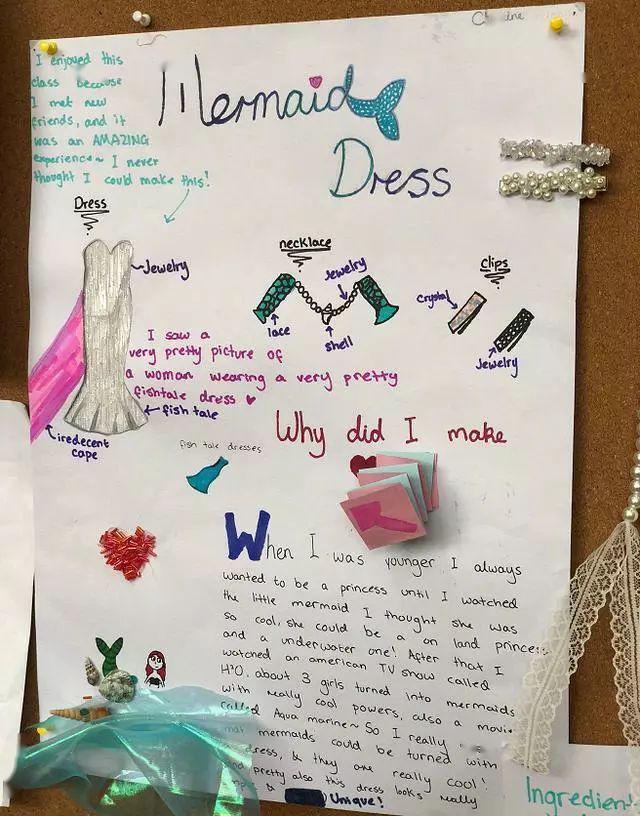 I enjoyed this
class because
I met new
friends, and it
was an AMAZING
experience~ I never
thought I could make this!
Mermaid
Dress
Dress
Jewelry
necklace
Jewelry
lace
shell
clips
crystal
Jewelry
I saw a
very pretty picture of
a woman wearing a very pretty
fishtale dress
fish tale
iredecent
cape
fish tale dresses
Why did I make
When I was younger I always
wanted to be a princess until I watched
the little mermaid I thought she was
so cool, she could be a on land princess
and a underwater one! After that I
watched an american TV show called
H2O, about 3 girls turned into mermaids
with really cool powers, also a movie
called Aqua marine~ So I really
mermaids could be turned with
dress, & they are really cool!
pretty also this dress looks really
& Unique!
Ingredien